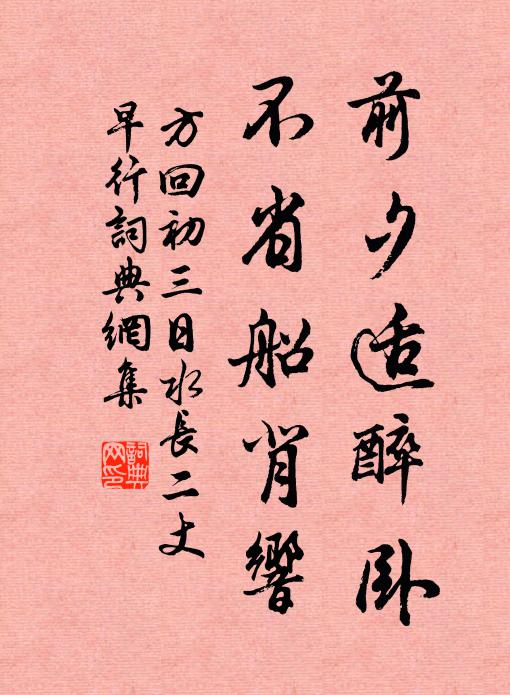 前夕适醉卧
不省船背響
方回初三日水長二丈
早行詞典網集
詞典网印